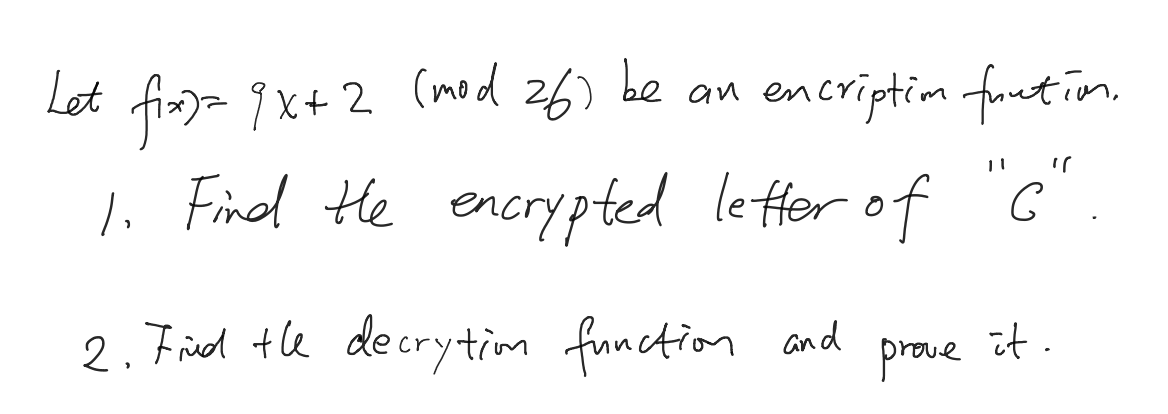 Let f(x)= 9x+2 (mod 26) be an encription function.
1. Find the encrypted letter of "C".
2. Find the decrytion function and prove it.